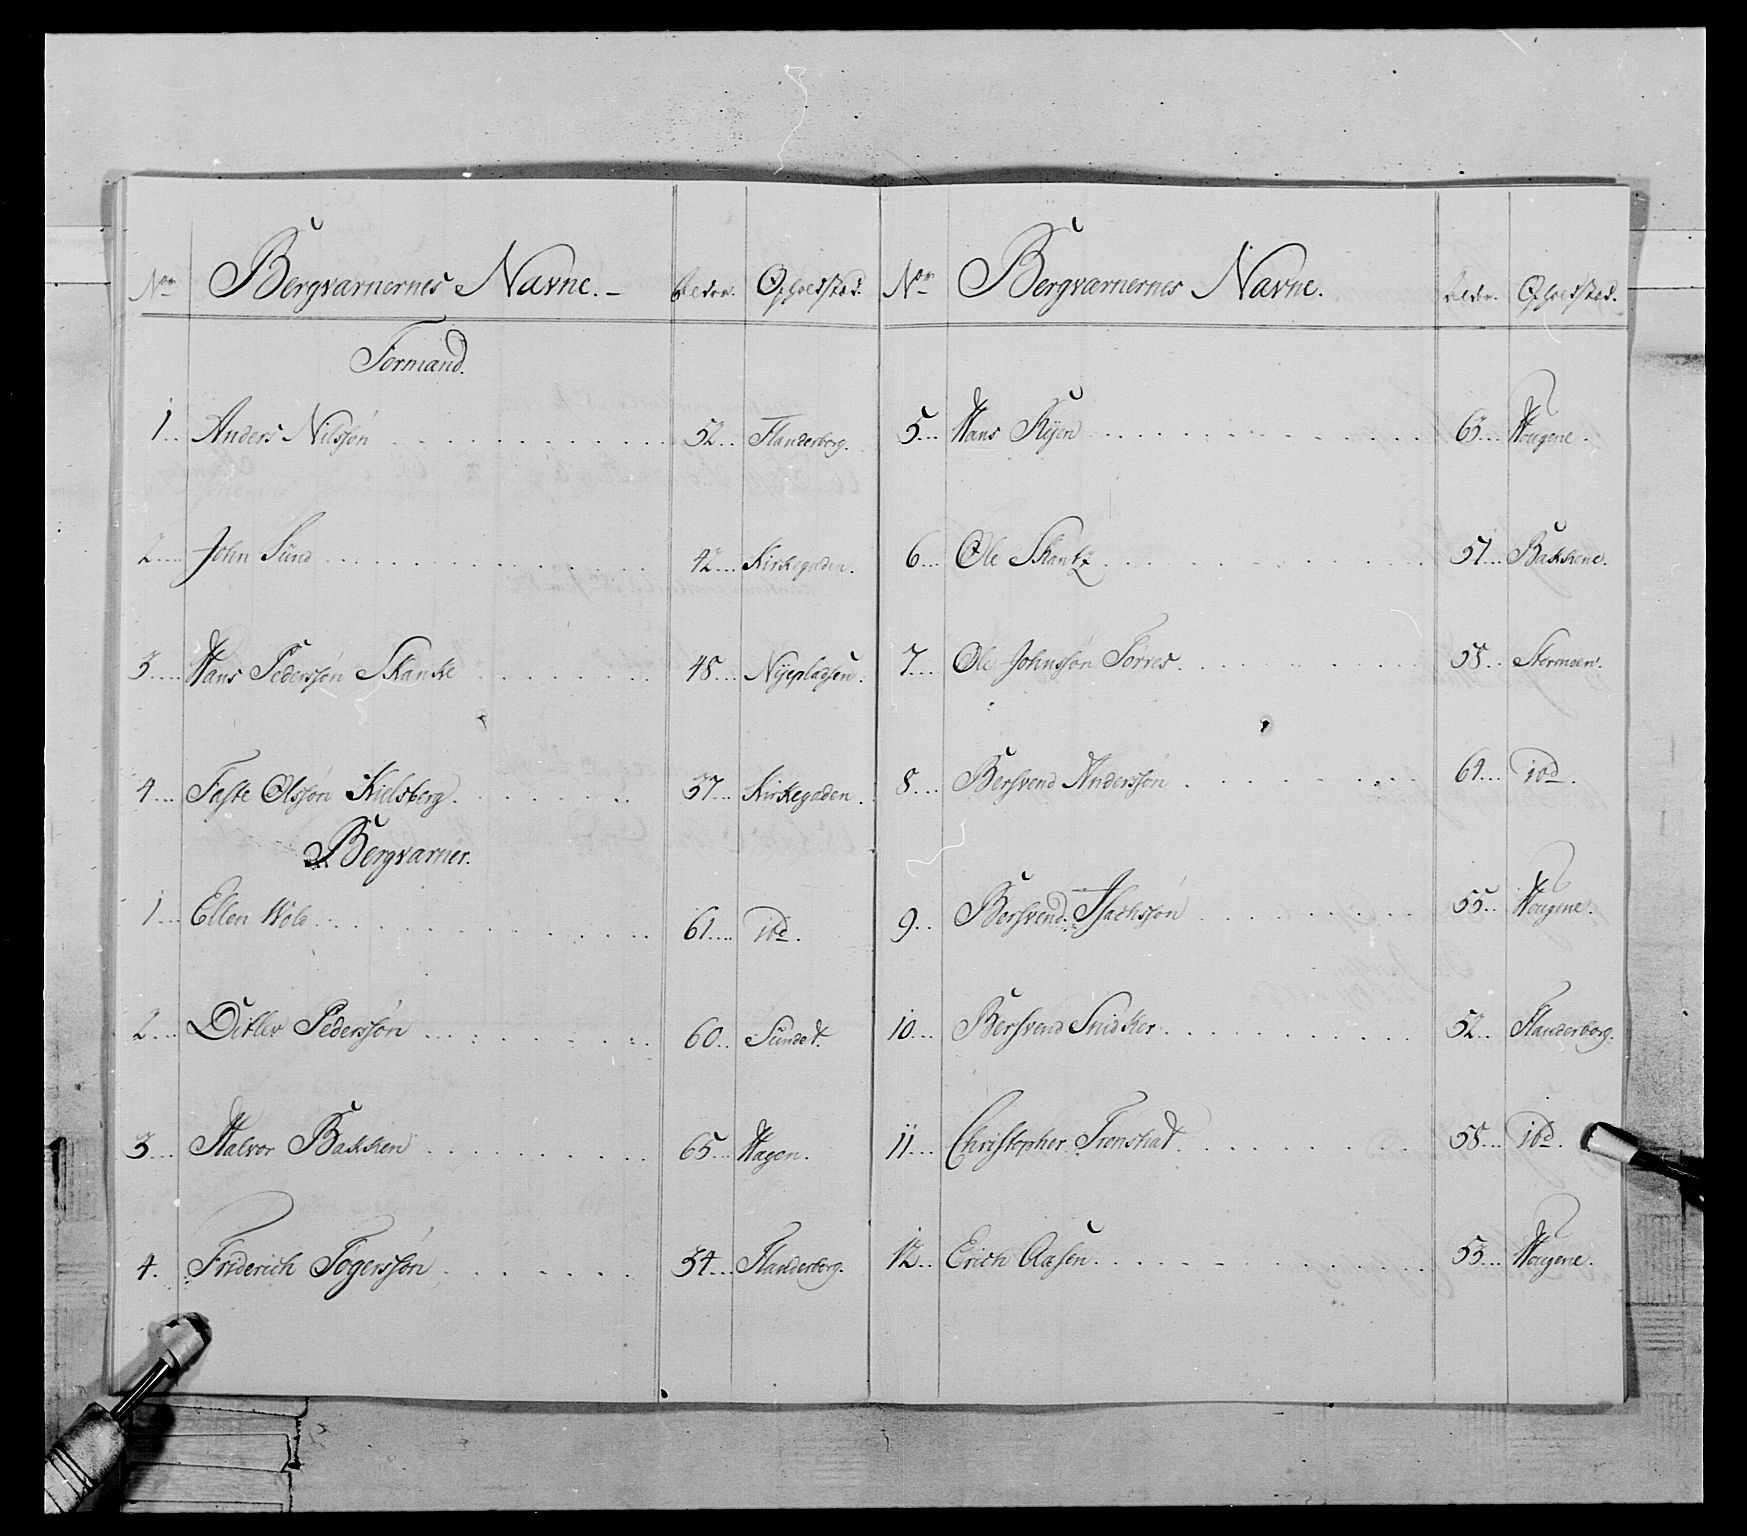 No Bergværnernes Navne. Alder. Opholdsted.
Formand.
1 Anders Nilssön 52 Flanderborg.
2 John Sund 42 Kirkegaden.
3 Hans Pederssön Skanke 48 Nyepladsen.
4 Faste Olssön Kielsberg. 37 Kirkegaden.
Bergværner.
1 Ellen Wold 61 ibd.
2 Ditlev Pederssön 60 Sundet.
3 Halvor Bakken 65 Hagen.
4 Friderich Tögerssön 34 Flanderborg.
No Bergværnernes Navne. Alder. Opholdsted.
5 Hans Ryen 63 Hougene.
6 Ole Skantz 57 Bakkene.
7 Ole Johnssön Törres. 58 Stormoen.
8 Bersvend Anderssön 61 ibd.
9 Bersvend Isachsön 55 Hougene.
10 Bersvend Snidker 52 Flanderborg.
11 Christopher Tronshat 58 ibd.
12 Erich Aasen 53 Hougene.